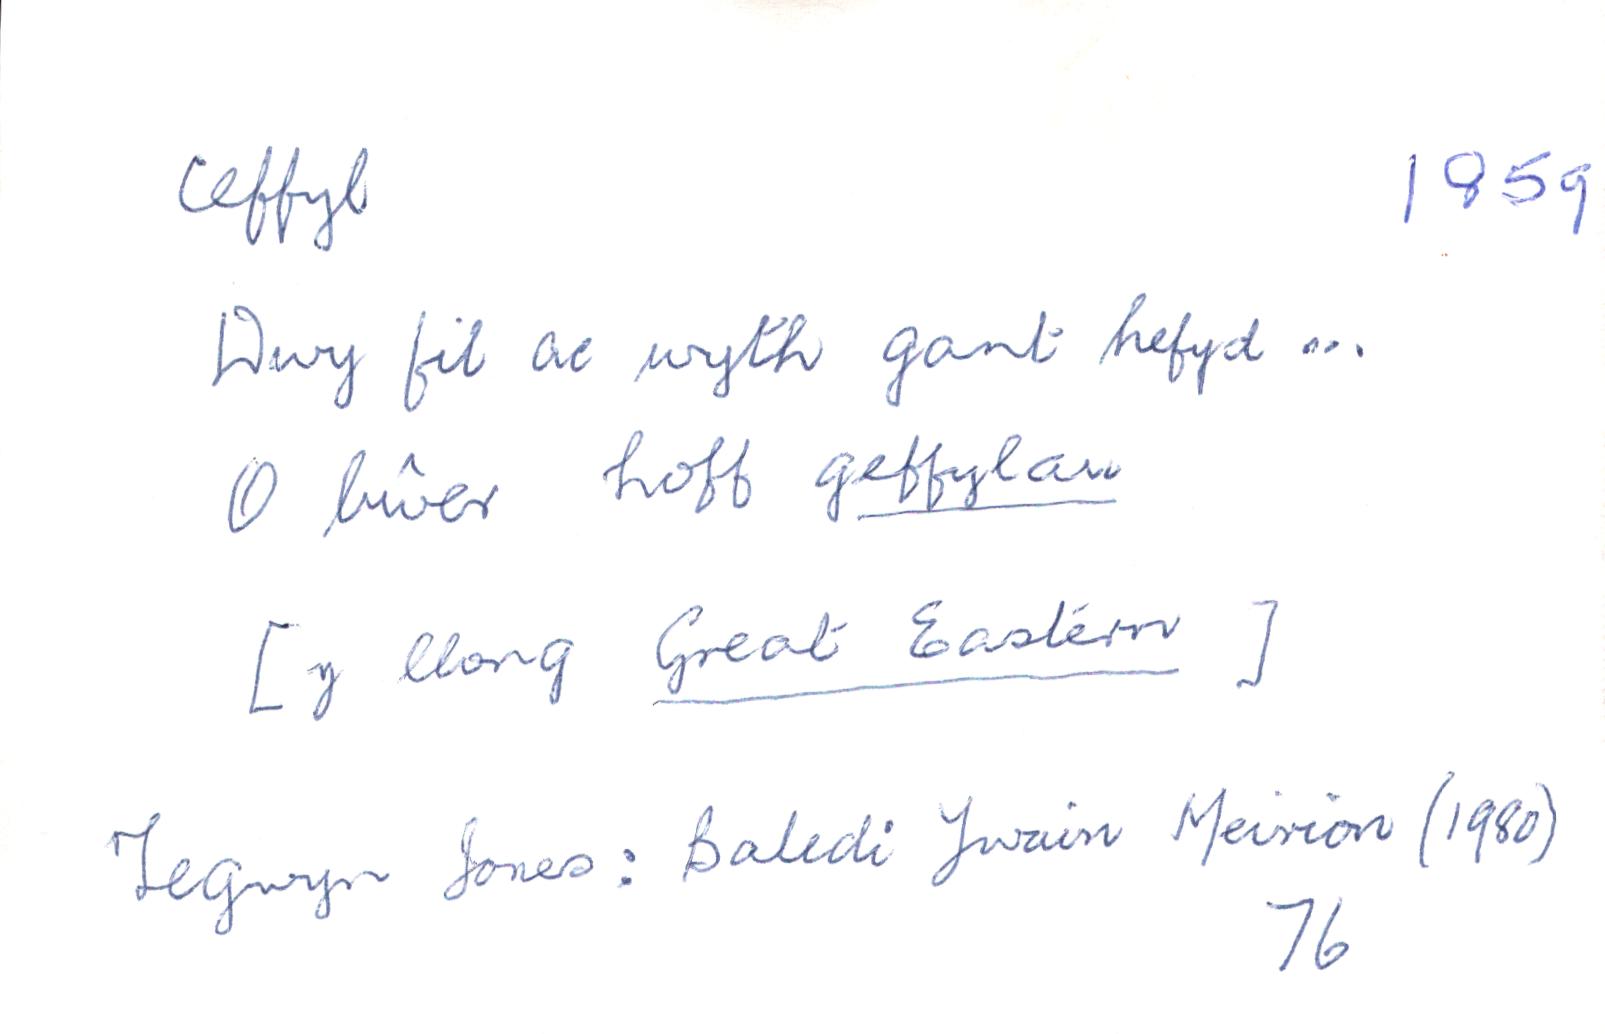 Ceffyl 1859
Dwy fil ac wyth gant hefyd ...
O bŵer hoff geffylau
[y llong Great Eastern]
Tegwyn Jones: Baledi Ywain Meirion (1980)
76